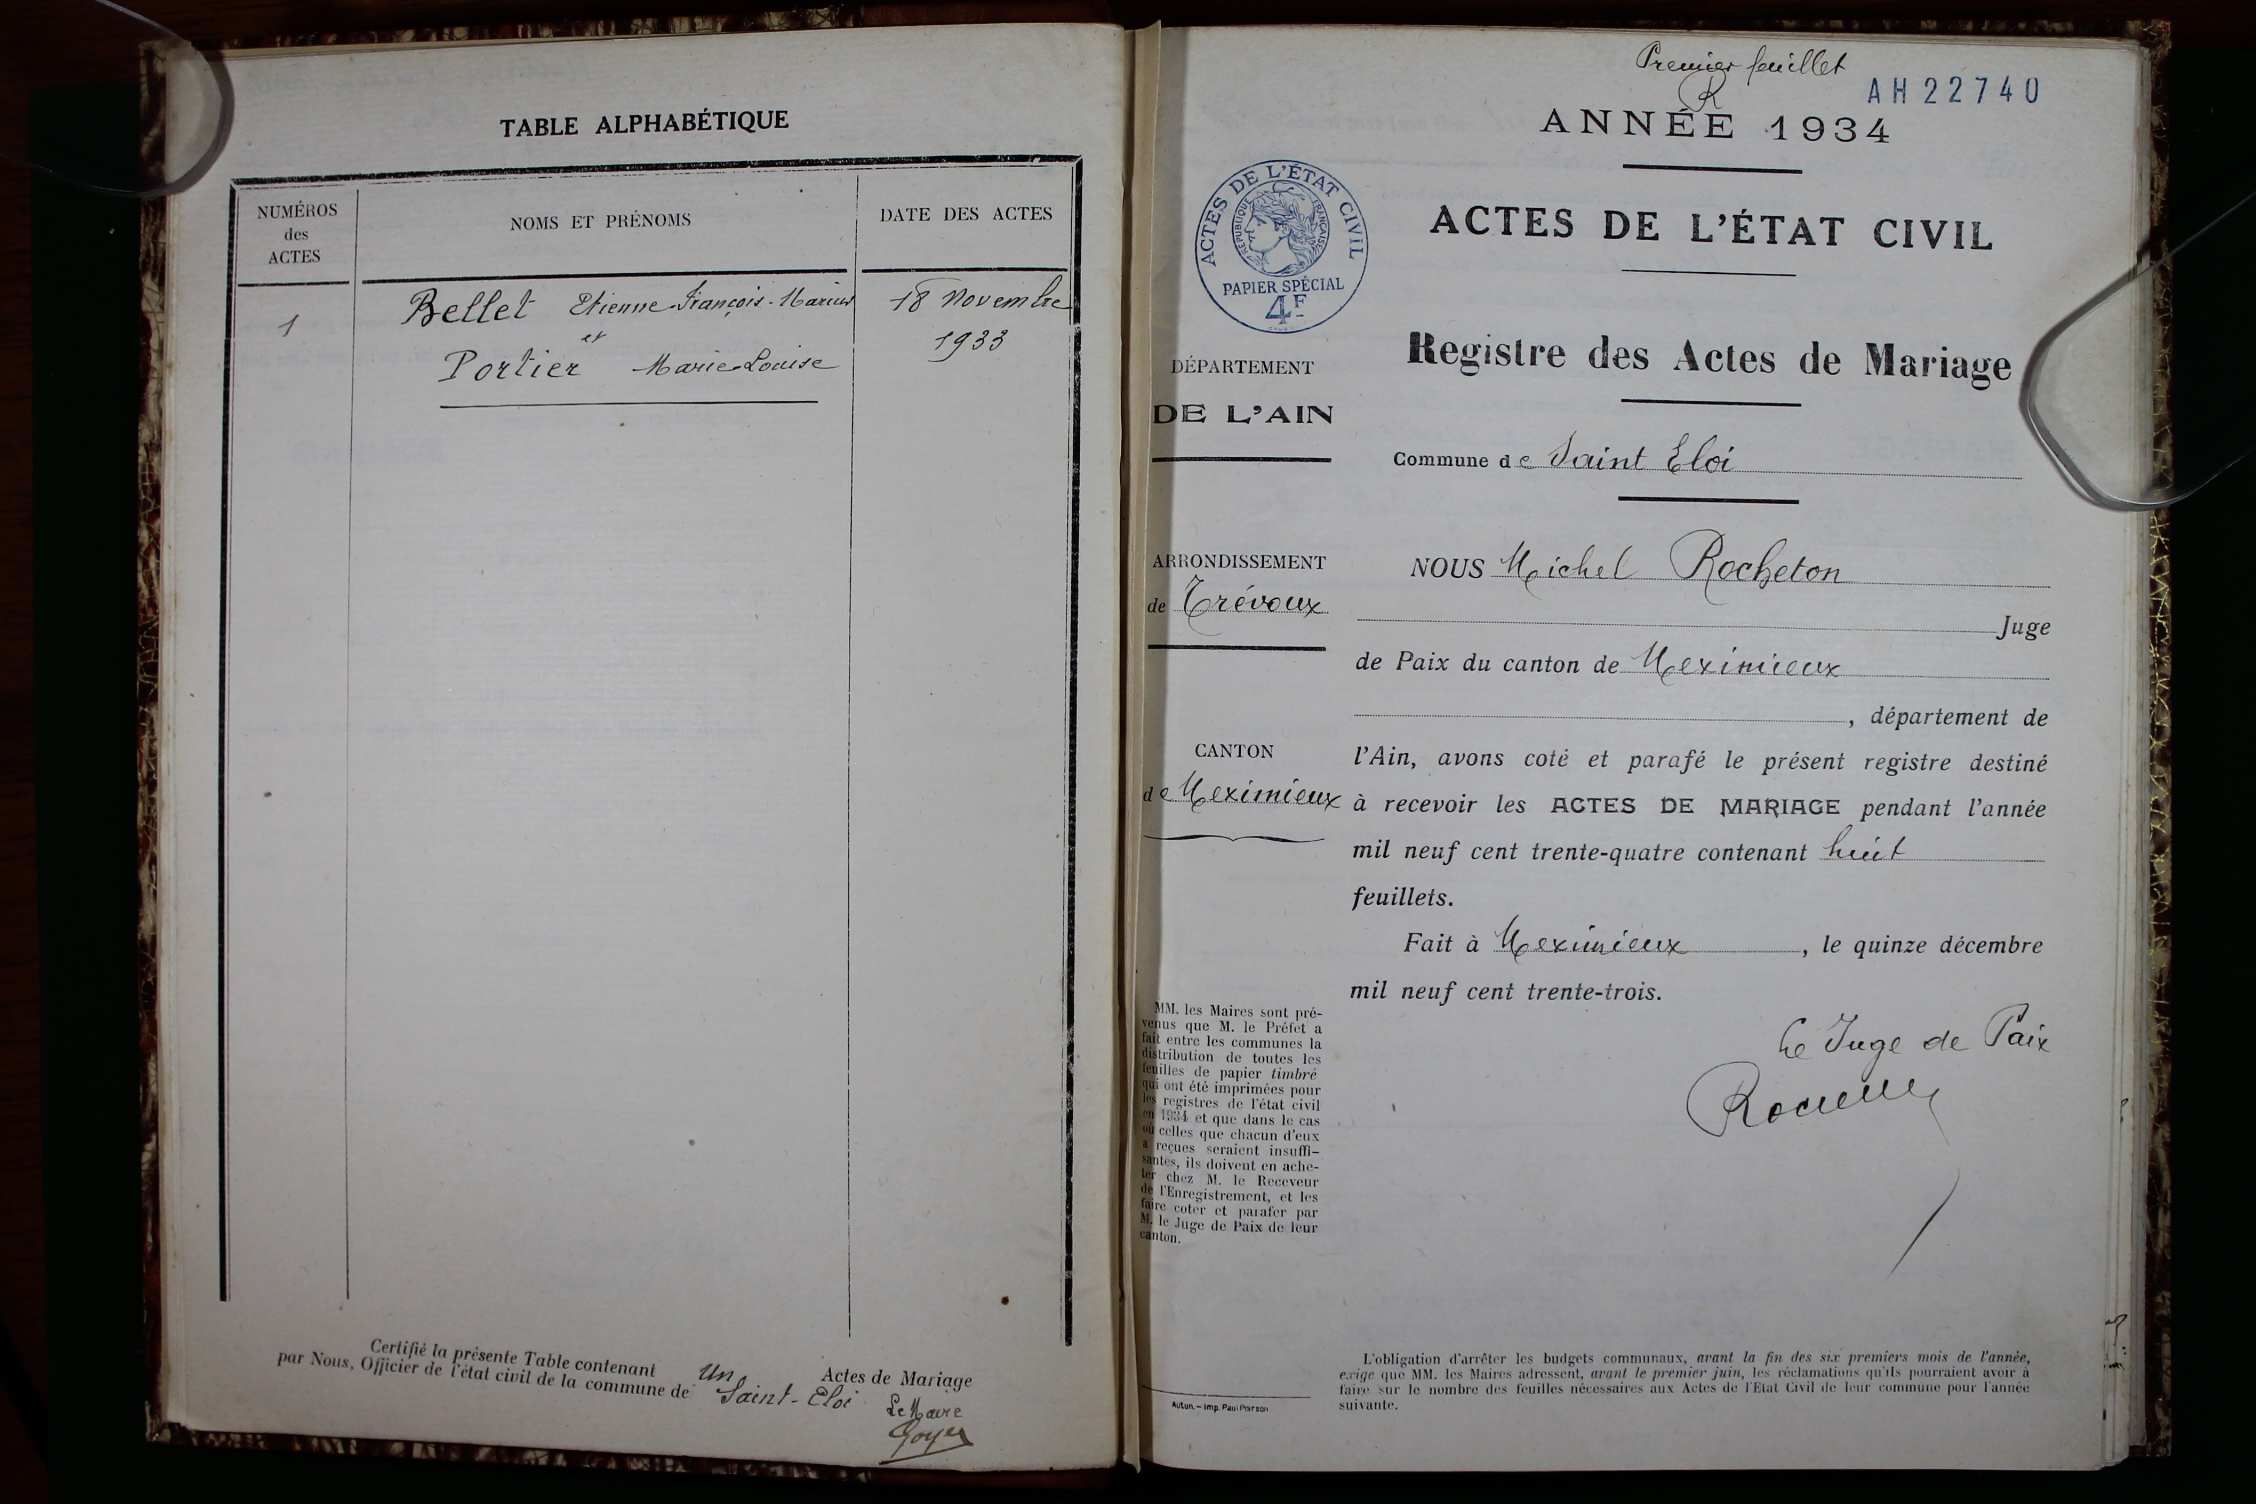 TABLE ALPHABÉTIQUE
NUMÉROS
des
ACTES
NOMS ET PRÉNOMS
DATE DES ACTES
1
Bellet Etienne-François-Marius
et
Portier Marie-Louise
18 Novembre
1933
Certifié la présente Table contenant un Actes de Mariage
par Nous, Officier de l'état civil de la commune de Saint-Eloi
Le Maire
Premier feuillet
R
AH22740
ANNÉE 1934
ACTES DE L'ÉTAT CIVIL
RÉPUBLIQUE FRANÇAISE
PAPIER SPÉCIAL
4F
ACTES DE L'ÉTAT CIVIL
Registre des Actes de Mariage
Commune de Saint Eloi
DÉPARTEMENT
DE L'AIN
ARRONDISSEMENT
de Trévoux
CANTON
de Meximieux
MM. les Maires sont pré-
venus que M. le Préfet a
fait entre les communes la
distribution de toutes les
feuilles de papier timbré
qui ont été imprimées pour
les registres de l'état civil
en 1934 et que dans le cas
où celles que chacun d'eux
a reçues seraient insuffi-
santes, ils doivent en ache-
ter chez M. le Receveur
de l'Enregistrement, et les
faire coter et parafer par
M. le Juge de Paix de leur
canton.
Autun. - Imp. Paul Poirson
NOUS Michel Rocheton
Juge
de Paix du canton de Meximieux
, département de
l'Ain, avons coté et parafé le présent registre destiné
à recevoir les ACTES DE MARIAGE pendant l'année
mil neuf cent trente-quatre contenant huit
feuillets.
Fait à Meximieux, le quinze décembre
mil neuf cent trente-trois.
Le Juge de Paix
L'obligation d'arrêter les budgets communaux, avant la fin des six premiers mois de l'année,
exige que MM. les Maires adressent, avant le premier juin, les réclamations qu'ils pourraient avoir à
faire sur le nombre des feuilles nécessaires aux Actes de l'Etat Civil de leur commune pour l'année
suivante.